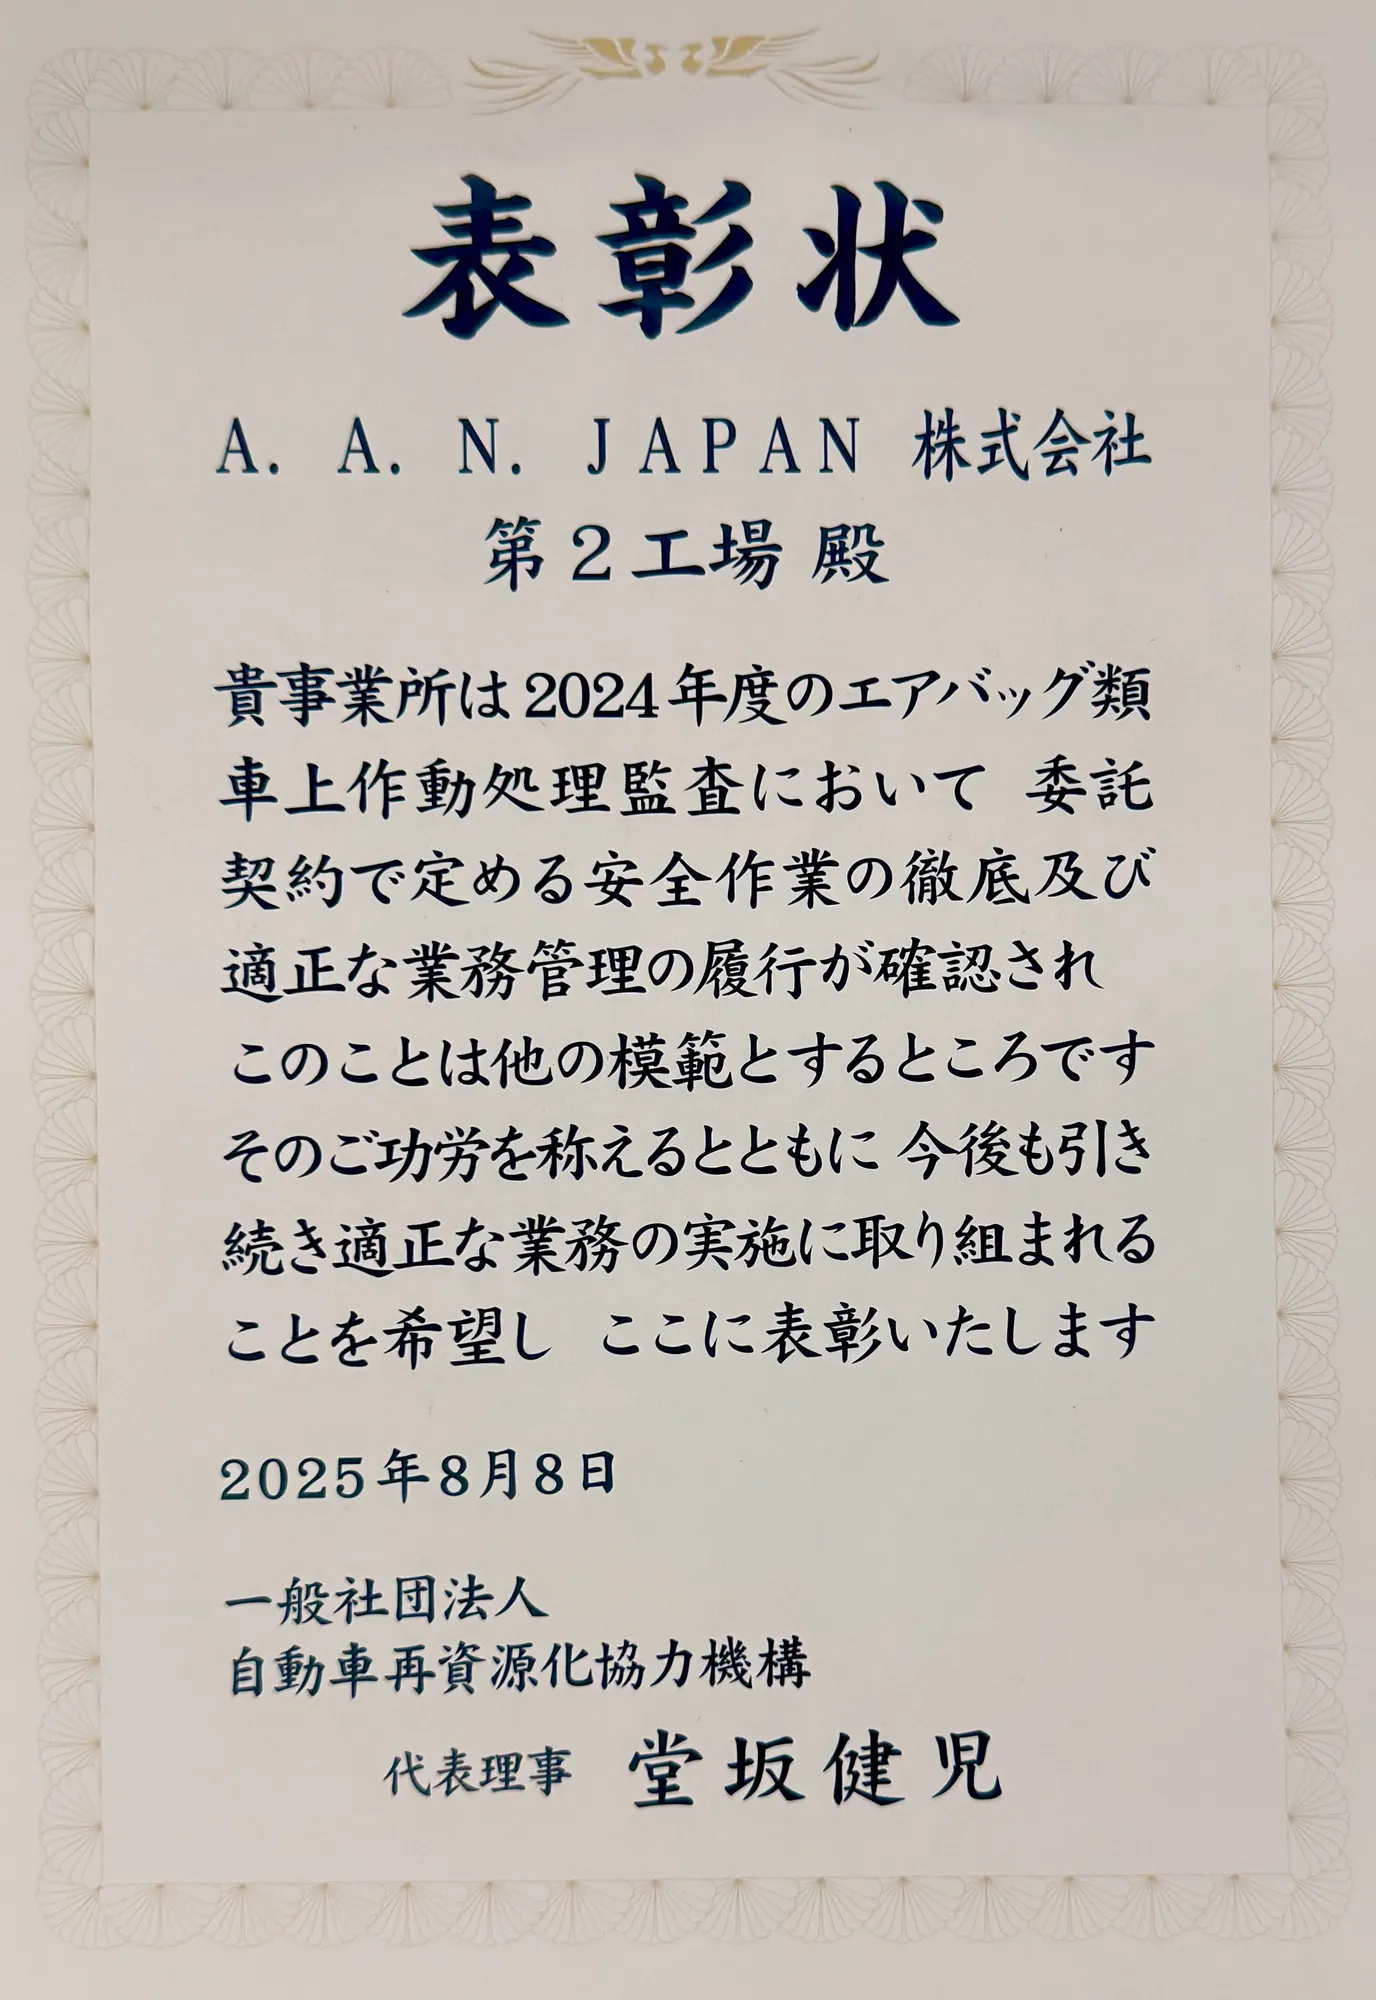 表彰状
A. A. N. JAPAN 株式会社
第2工場 殿
貴事業所は2024年度のエアバッグ類
車上作動処理監査において 委託
契約で定める安全作業の徹底及び
適正な業務管理の履行が確認され
このことは他の模範とするところです
そのご功労を称えるとともに 今後も引き
続き適正な業務の実施に取り組まれる
ことを希望し ここに表彰いたします
2025年8月8日
一般社団法人
自動車再資源化協力機構
代表理事 堂坂健児